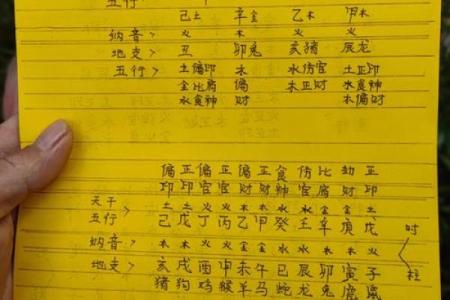 五行>
己土 辛金 乙木 甲木
纳音> 火 火 火 火
地支> 丑 卯兔 亥猪 辰龙
五行> 土偏印 木 水伤官 土正印
金比肩 偏 木正财 水食神
水食神 财 木偏财
偏正偏正偏正食伤比劫正
印印官官财财神官肩财印
天干> 土土火火木木水水金金土
五行 己戊丁丙乙甲癸壬辛庚戊 时
纳音> 木木火火 火
地支> 亥戌酉申未午巳辰卯寅子 柱
猪狗鸡猴羊马蛇龙兔虎